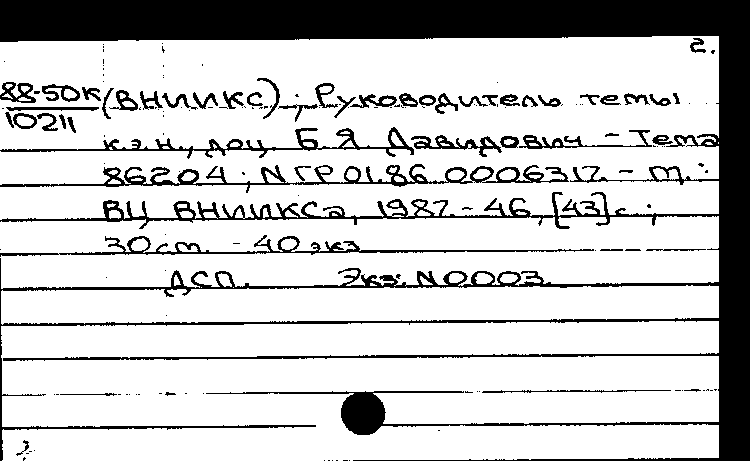 2.
88-50к (ВНИИКС) ; Руководитель темы
10211
к.э.н., доц. Б.Я. Давидович - Тема
86204 ; N ГР 01.86.0006317. - М.:
ВЦ ВНИИКСа, 1987. - 46, [43] с. ;
30 см. - 40 экз
ДСП. Экз. N0003.